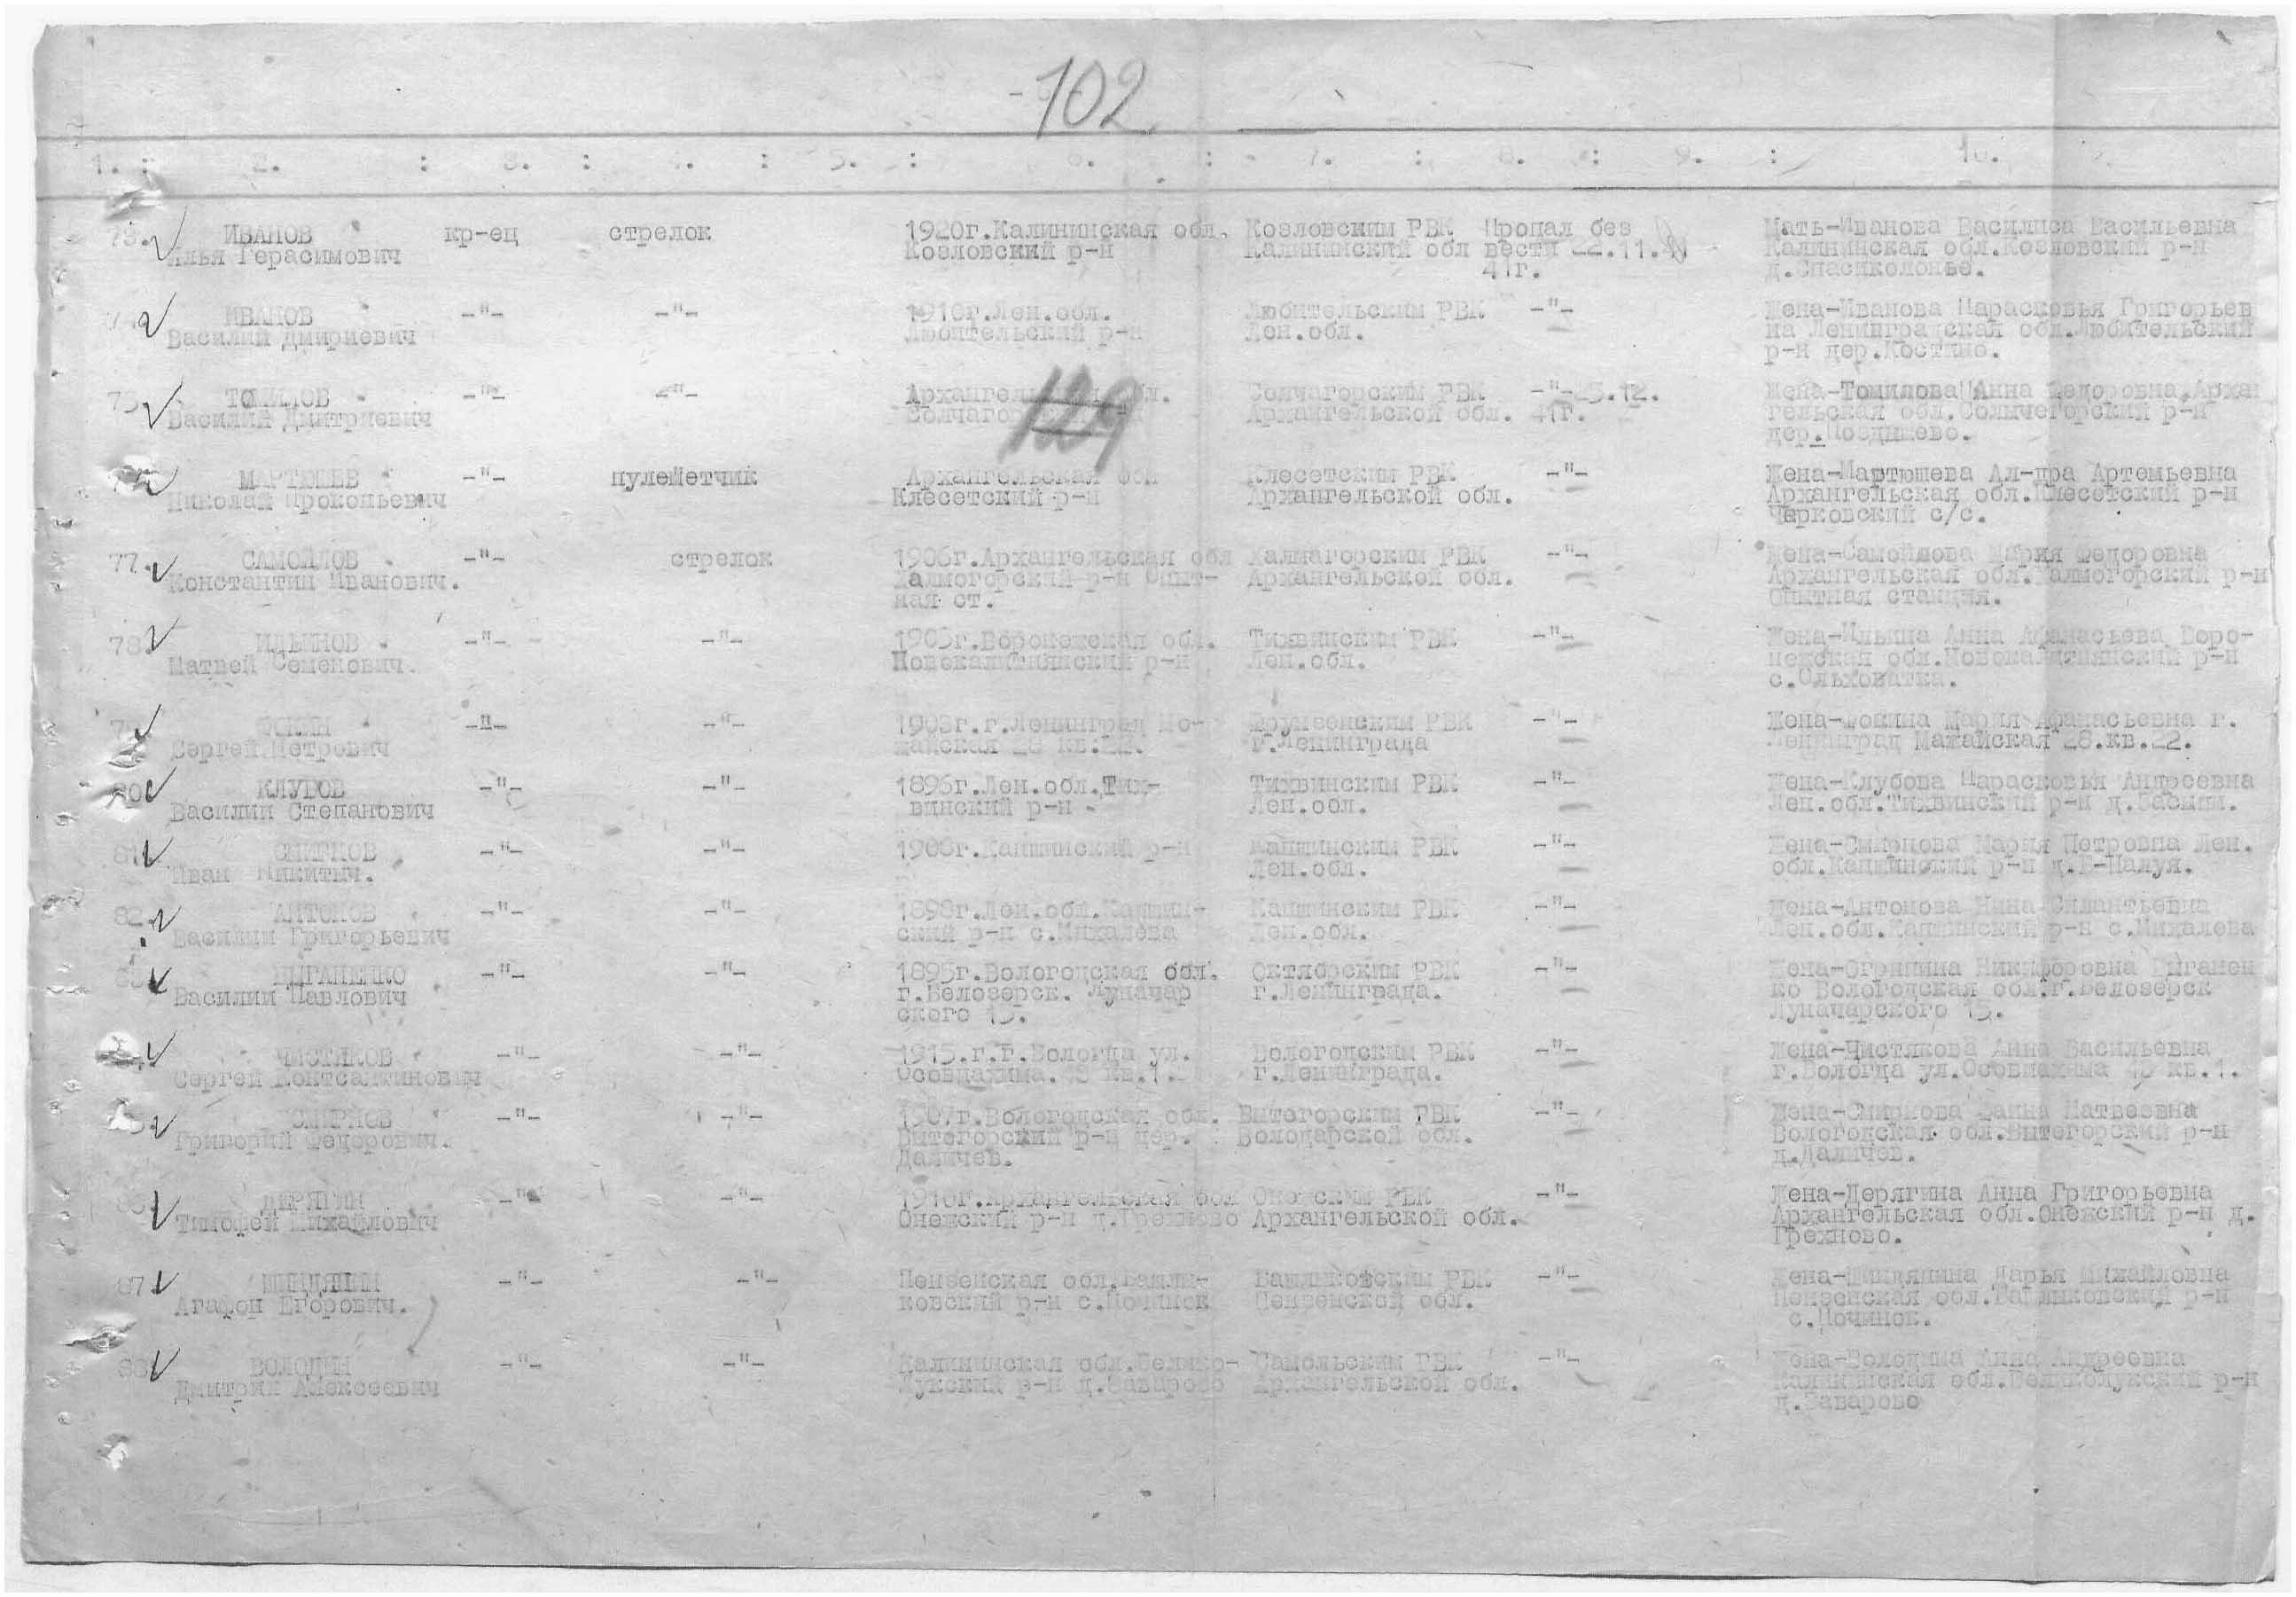 102
1. : 2. : 3. : 4. : 5. : 6. : 7. : 8. : 9. : 10.
73. ИВАНОВ кр-ец стрелок 1920г.Калининская обл. Козловским РВК Пропал без Мать-Иванова Василиса Васильевна
Илья Герасимович Козловский р-н Калининский обл вести 22.11. Калининская обл.Козловский р-н
41г. д.Спасиколонье.
ИВАНОВ -"- -"- 1910г.Лен.обл. Любительским РВК -"- Жена-Иванова Парасковья Григорьев
Василий Дмириевич Любительский р-н Лен.обл. на Ленинградская обл.Любительский
р-н дер.Костино.
75. ТОМИЛОВ -"- -"- 129 Солчагорским РВК -"- 5.12. Жена-Томилова Анна Федоровна,Архан
Василий Дмитриевич Архангельской обл. 41г. гельская обл.Солычегорский р-н
дер.
МАРТЮШЕВ -"- пулеметчик Архангельская обл Клесетским РВК -"- Жена-Мартюшева Ал-дра Артемьевна
Николай Прокопьевич Клесетский р-н Архангельской обл. Архангельская обл.Клесетский р-н
Чарковский с/с.
77. САМОЙЛОВ -"- стрелок 1906г.Архангельская обл Халмагорским РВК -"- Жена-Самойлова Мария Федоровна
Константин Иванович. Халмогорский р-н Опыт- Архангельской обл. Архангельская обл.Халмогорский р-н
ная ст. Опытная станция.
78. ИЛЬИНОВ -"- -"- 1905г.Воронежская обл. Тихвинским РВК -"- Жена-Ильина Анна Афанасьева Воро-
Матвей Семенович. Новокалитнянский р-н Лен.обл. нежская обл.Новокалитнянский р-н
с.Ольховатка.
ФОКИН -"- -"- 1903г.г.Ленинград Мо- Фрунзенским РВК -"- Жена-Фокина Мария Афанасьевна г.
Сергей Петрович жайская 28 кв.22. г.Ленинграда Ленинград Мажайская 28.кв.22.
80. КЛУБОВ -"- -"- 1896г.Лен.обл.Тих- Тихвинским РВК -"- Жена-Клубова Парасковья Андреевна
Василий Степанович винский р-н Лен.обл. Лен.обл.Тихвинский р-н
81. СМИРНОВ -"- -"- 1906г.Капшинский р-н Капшинским РВК -"- Жена-Смирнова Мария Петровна Лен.
Иван Никитич. Лен.обл. обл.Капшинский р-н
82. АНТОНОВ -"- -"- 1898г.Лен.обл.Капшин- Капшинским РВК -"- Жена-Антонова Нина Силантьевна
Василий Григорьевич ский р-н с.Михалева Лен.обл. Лен.обл.Капшинский р-н с.Михалева
ЦЫГАНЕНКО -"- -"- 1895г.Вологодская обл. Октябрским РВК -"- Жена-Огрипина Никифоровна Цыганен
Василий Павлович г.Белозерск. Луначар г.Ленинграда. ко Вологодская обл.г.Белозерск
ского 15. Луначарского 15.
ЧИСТЯКОВ -"- -"- 1915.г.г.Вологда ул. Вологодским РВК -"- Жена-Чистякова Анна Васильевна
Сергей Контсантинович Осовиахима. кв.1. г.Ленинграда. г.Вологда ул.Осовиахима кв.1.
СМИРНОВ -"- -"- 1907г.Вологодская обл. Вытегорским РВК -"- Жена-Смирнова Фаина Матвеевна
Григорий Федорович. Вытегорский р-н дер. Володарской обл. Вологодская обл.Вытегорский р-н
Даличев. д.Даличев.
86. ДЕРЯГИН -"- -"- 1910г.Архангельская обл Онежским РВК -"- Жена-Дерягина Анна Григорьевна
Тимофей Михайлович Онежский р-н д.Грехново Архангельской обл. Архангельская обл.Онежский р-н д.
Грехново.
87. ШИНДЯПИН -"- -"- Пензенская обл.Башма- Башмаковским РВК -"- Жена-Шиндяпина Дарья Михайловна
Агафон Егорович. ковский р-н с.Починок Пензенской обл. Пензенская обл.Башмаковский р-н
с.Починок.
88. ВОЛОДИН -"- -"- Калининская обл.Велико- РВК -"- Жена-Володина Анна Андреевна
Дмитрий Алексеевич Лукский р-н д.Заварово Архангельской обл. Калининская обл.Великолукский р-н
д.Заварово